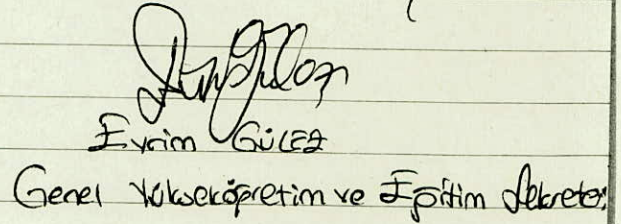 Evrim GÜLEZ
Genel Yükseköğretim ve Eğitim Sekreteri